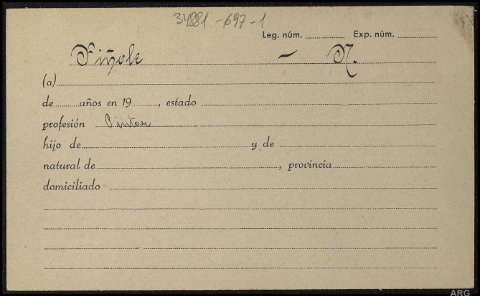 34881-697-1
Leg. núm. Exp. núm.
Piñole - N.
(a)
de años en 19 , estado
profesión Pintor
hijo de y de
natural de , provincia
domiciliado
ARG